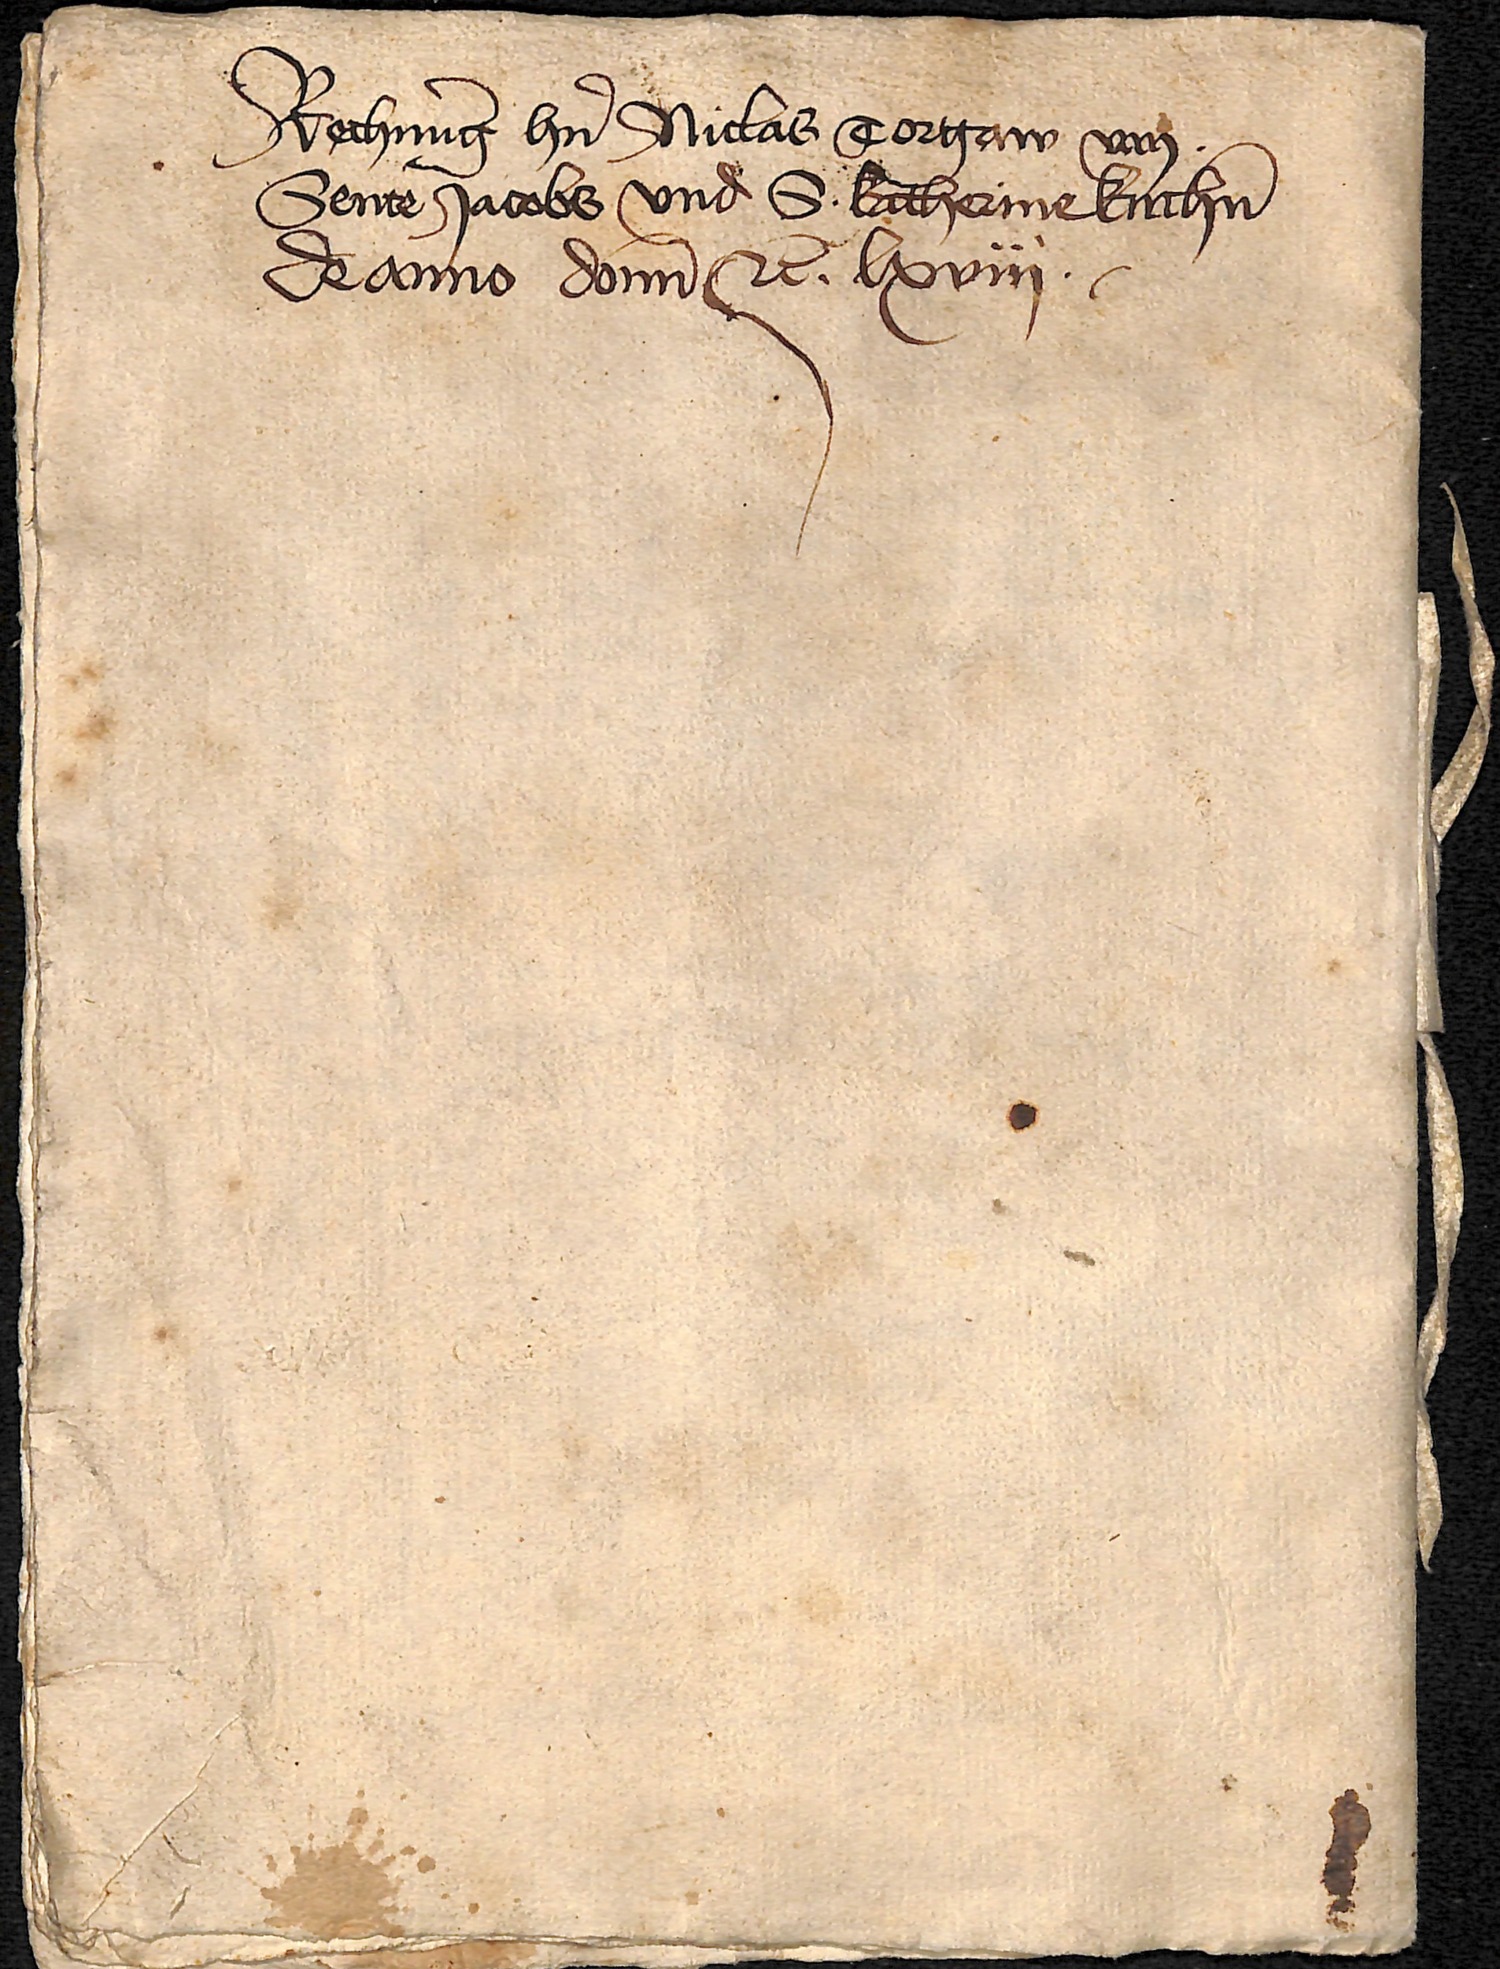 Rechnu͞g hn̄ Niclas Torgaw von.
Sente Jacobs vnd S. katherine kirchn̄
de anno domͥ ꝛc̄. lxviij.